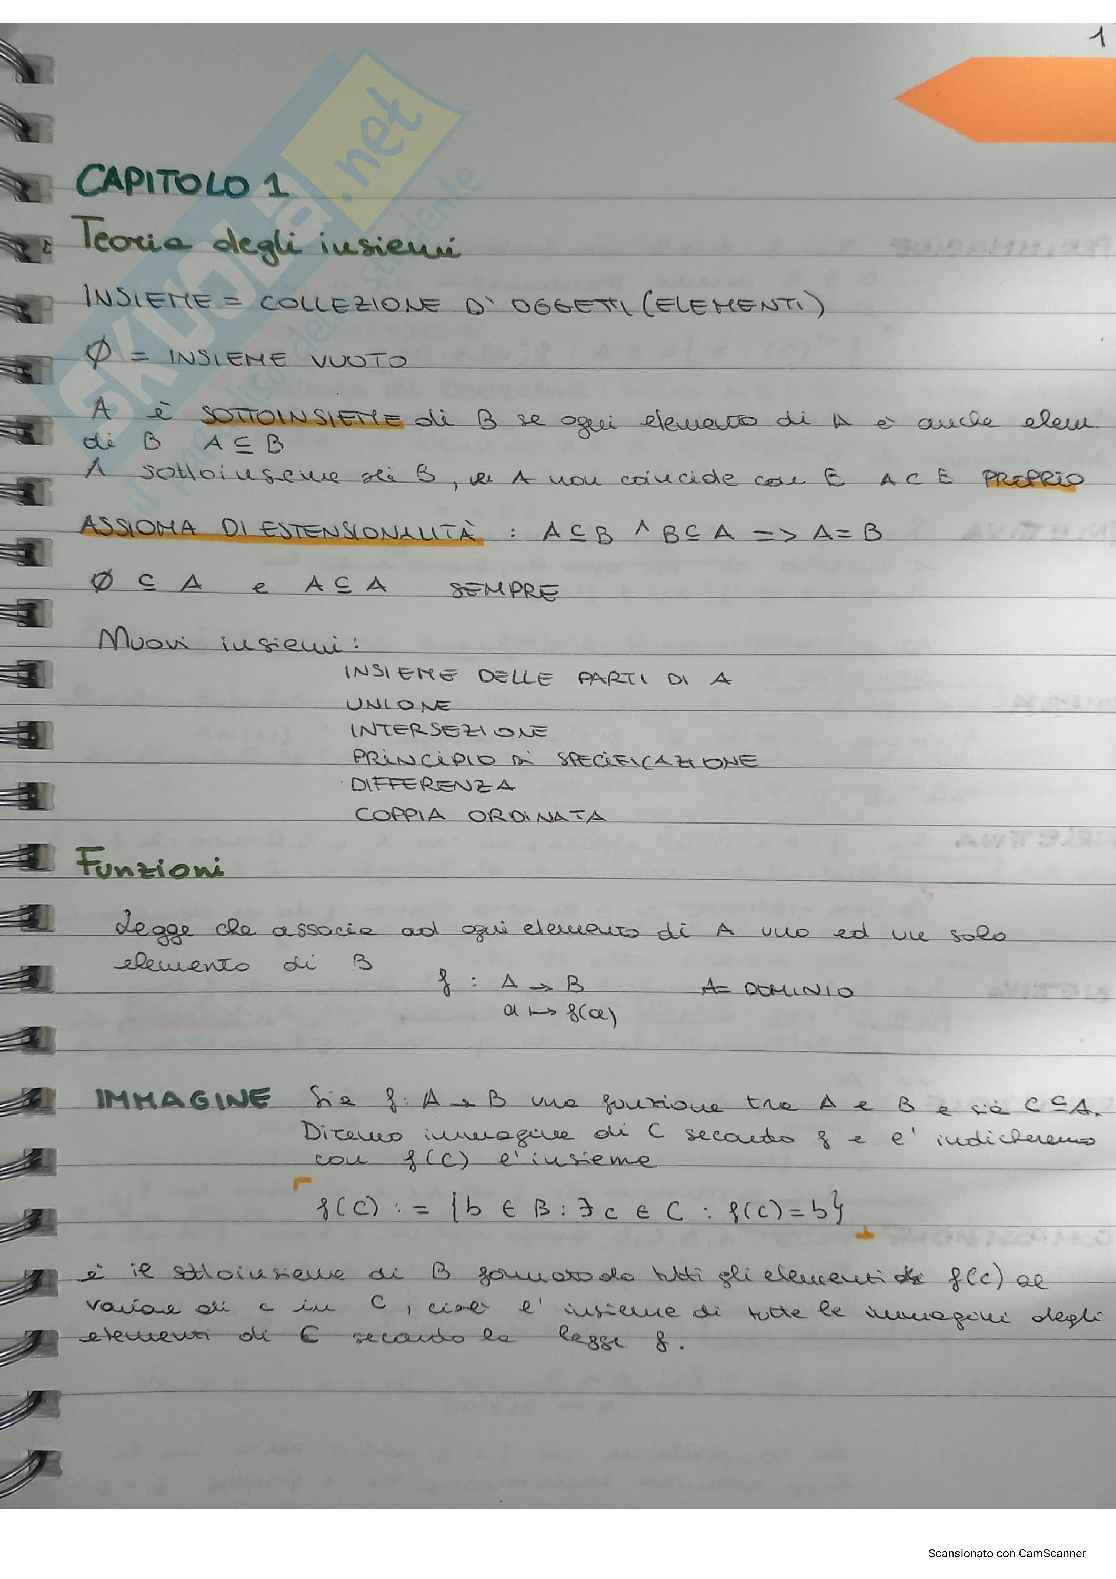 1
CAPITOLO 1
Teoria degli insiemi
INSIEME = COLLEZIONE D'OGGETTI (ELEMENTI)
∅ = INSIEME VUOTO
A è SOTTOINSIEME di B se ogni elemento di A è anche elem.
di B A ⊆ B
A sottoinsieme di B, se A non coincide con B A ⊂ B PROPRIO
ASSIOMA DI ESTENSIONALITÀ : A ⊆ B ∧ B ⊆ A => A = B
∅ ⊆ A e A ⊆ A SEMPRE
Nuovi insiemi:
INSIEME DELLE PARTI DI A
UNIONE
INTERSEZIONE
PRINCIPIO DI SPECIFICAZIONE
DIFFERENZA
COPPIA ORDINATA
Funzioni
Legge che associa ad ogni elemento di A uno ed un solo
elemento di B
f : A → B A = DOMINIO
a ↦ f(a)
IMMAGINE Sia f: A → B una funzione tra A e B e sia C ⊆ A.
Diremo immagine di C secondo f e l'indicheremo
con f(C) l'insieme
f(C) := {b ∈ B : ∃ c ∈ C : f(c) = b}
è il sottoinsieme di B formato da tutti gli elementi f(c) al
variare di c in C, cioè l'insieme di tutte le immagini degli
elementi di C secondo la legge f.
SKUOLA.net
Scansionato con CamScanner